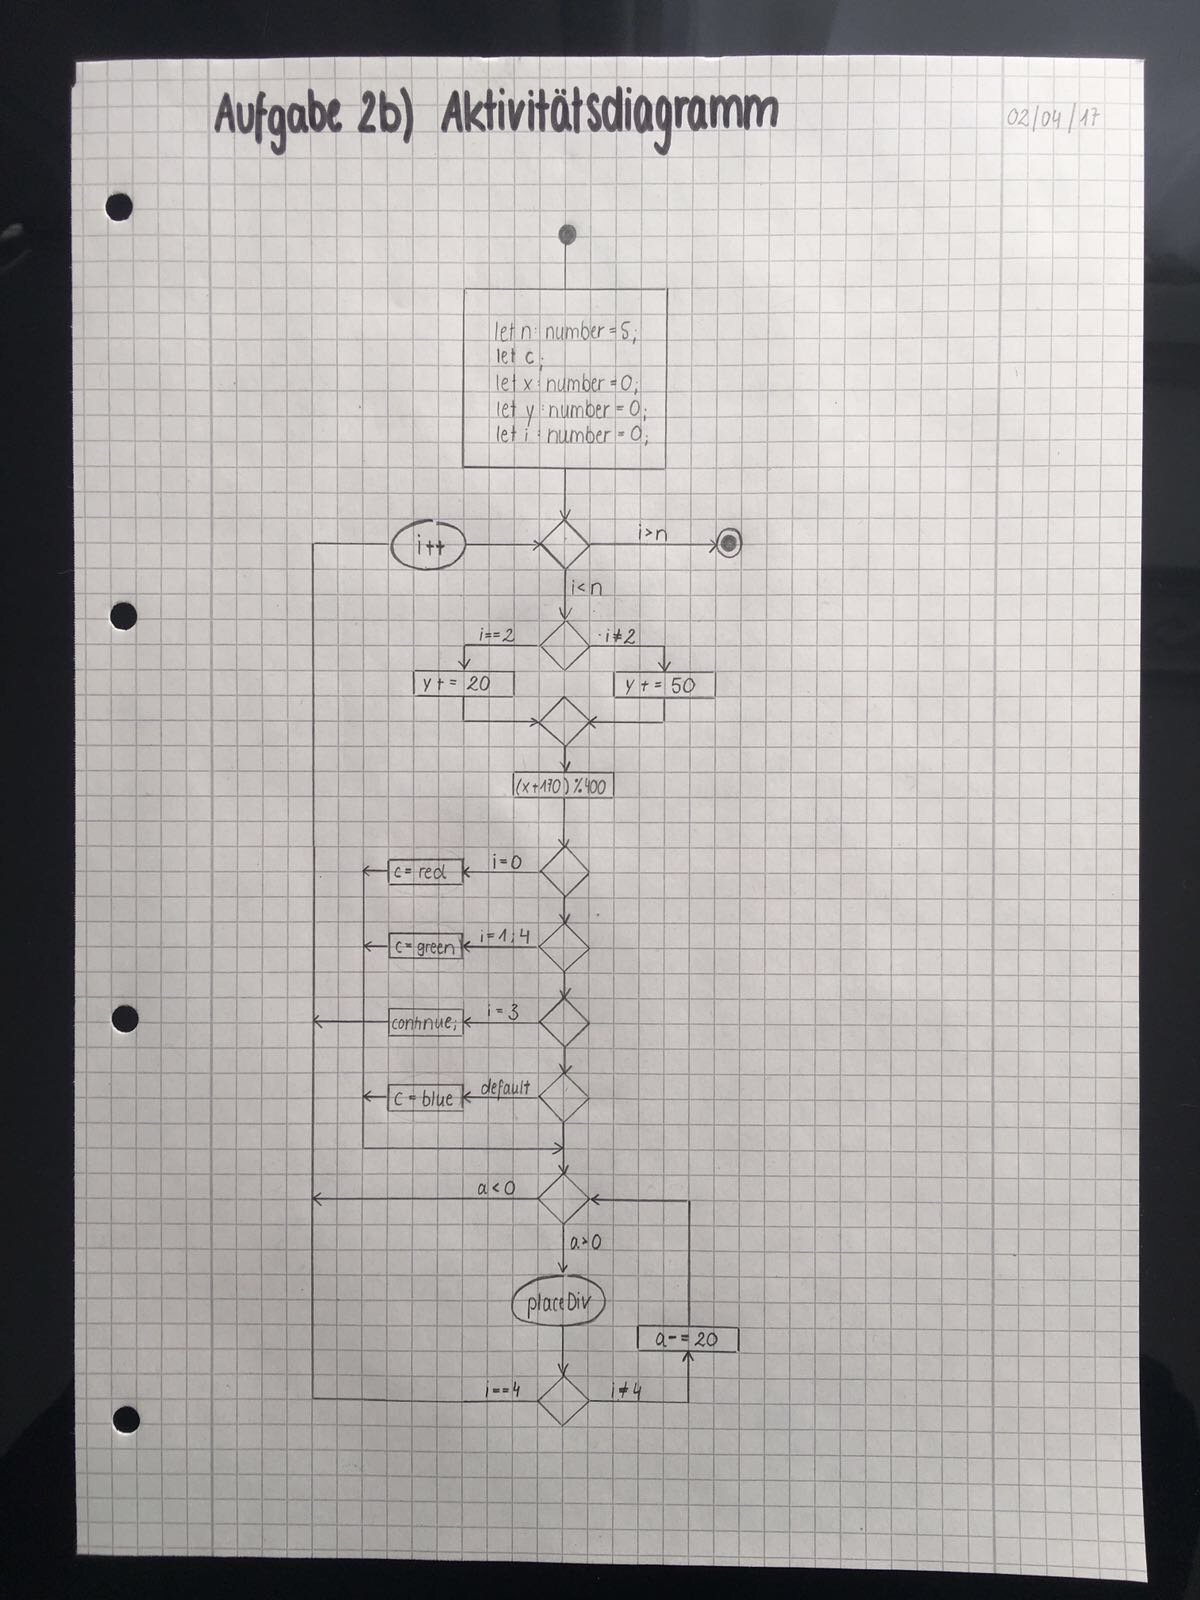 Aufgabe 2b) Aktivitätsdiagramm
02/04/17
let n: number = 5;
let c;
let x: number = 0;
let y: number = 0;
let i: number = 0;
i++
i>n
i<n
i==2
i≠2
y+= 20
y+= 50
(x+170)%400
c= red
i=0
c= green
i=1;4
continue;
i=3
c= blue
default
a<0
a>0
placeDiv
a-=20
i==4
i≠4